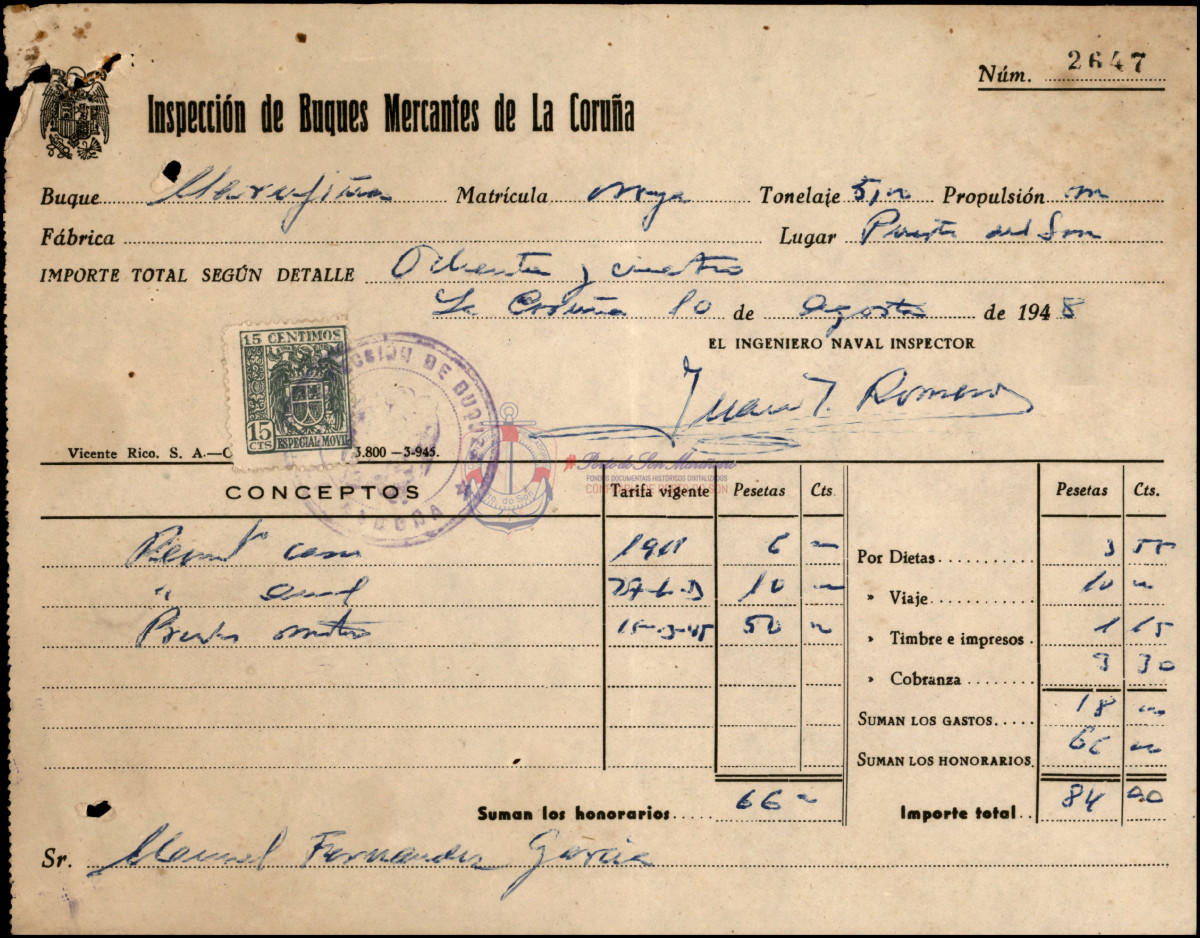 Núm. 2647
Inspección de Buques Mercantes de La Coruña
Buque Marujiña Matrícula Noya Tonelaje 5,00 Propulsión m
Fábrica Lugar Puerto del Son
IMPORTE TOTAL SEGÚN DETALLE Ochenta y cuatro
La Coruña 10 de agosto de 1948
EL INGENIERO NAVAL INSPECTOR
Juan J. Romero
15 CENTIMOS
15 CTS ESPECIAL MOVIL
Vicente Rico. S. A.— 3.800 — 3-945.
Porto do Son Mariñeiro
FONDOS DOCUMENTAIS HISTÓRICOS DIGITALIZADOS
CONCEPTOS Tarifa vigente Pesetas Cts. Pesetas Cts.
6 Por Dietas 3 55
10 » Viaje 10
50 » Timbre e impresos 1 15
» Cobranza 3 30
SUMAN LOS GASTOS 18
SUMAN LOS HONORARIOS 66
Suman los honorarios 66 Importe total 84 00
Sr. Manuel Fernandez Garcia